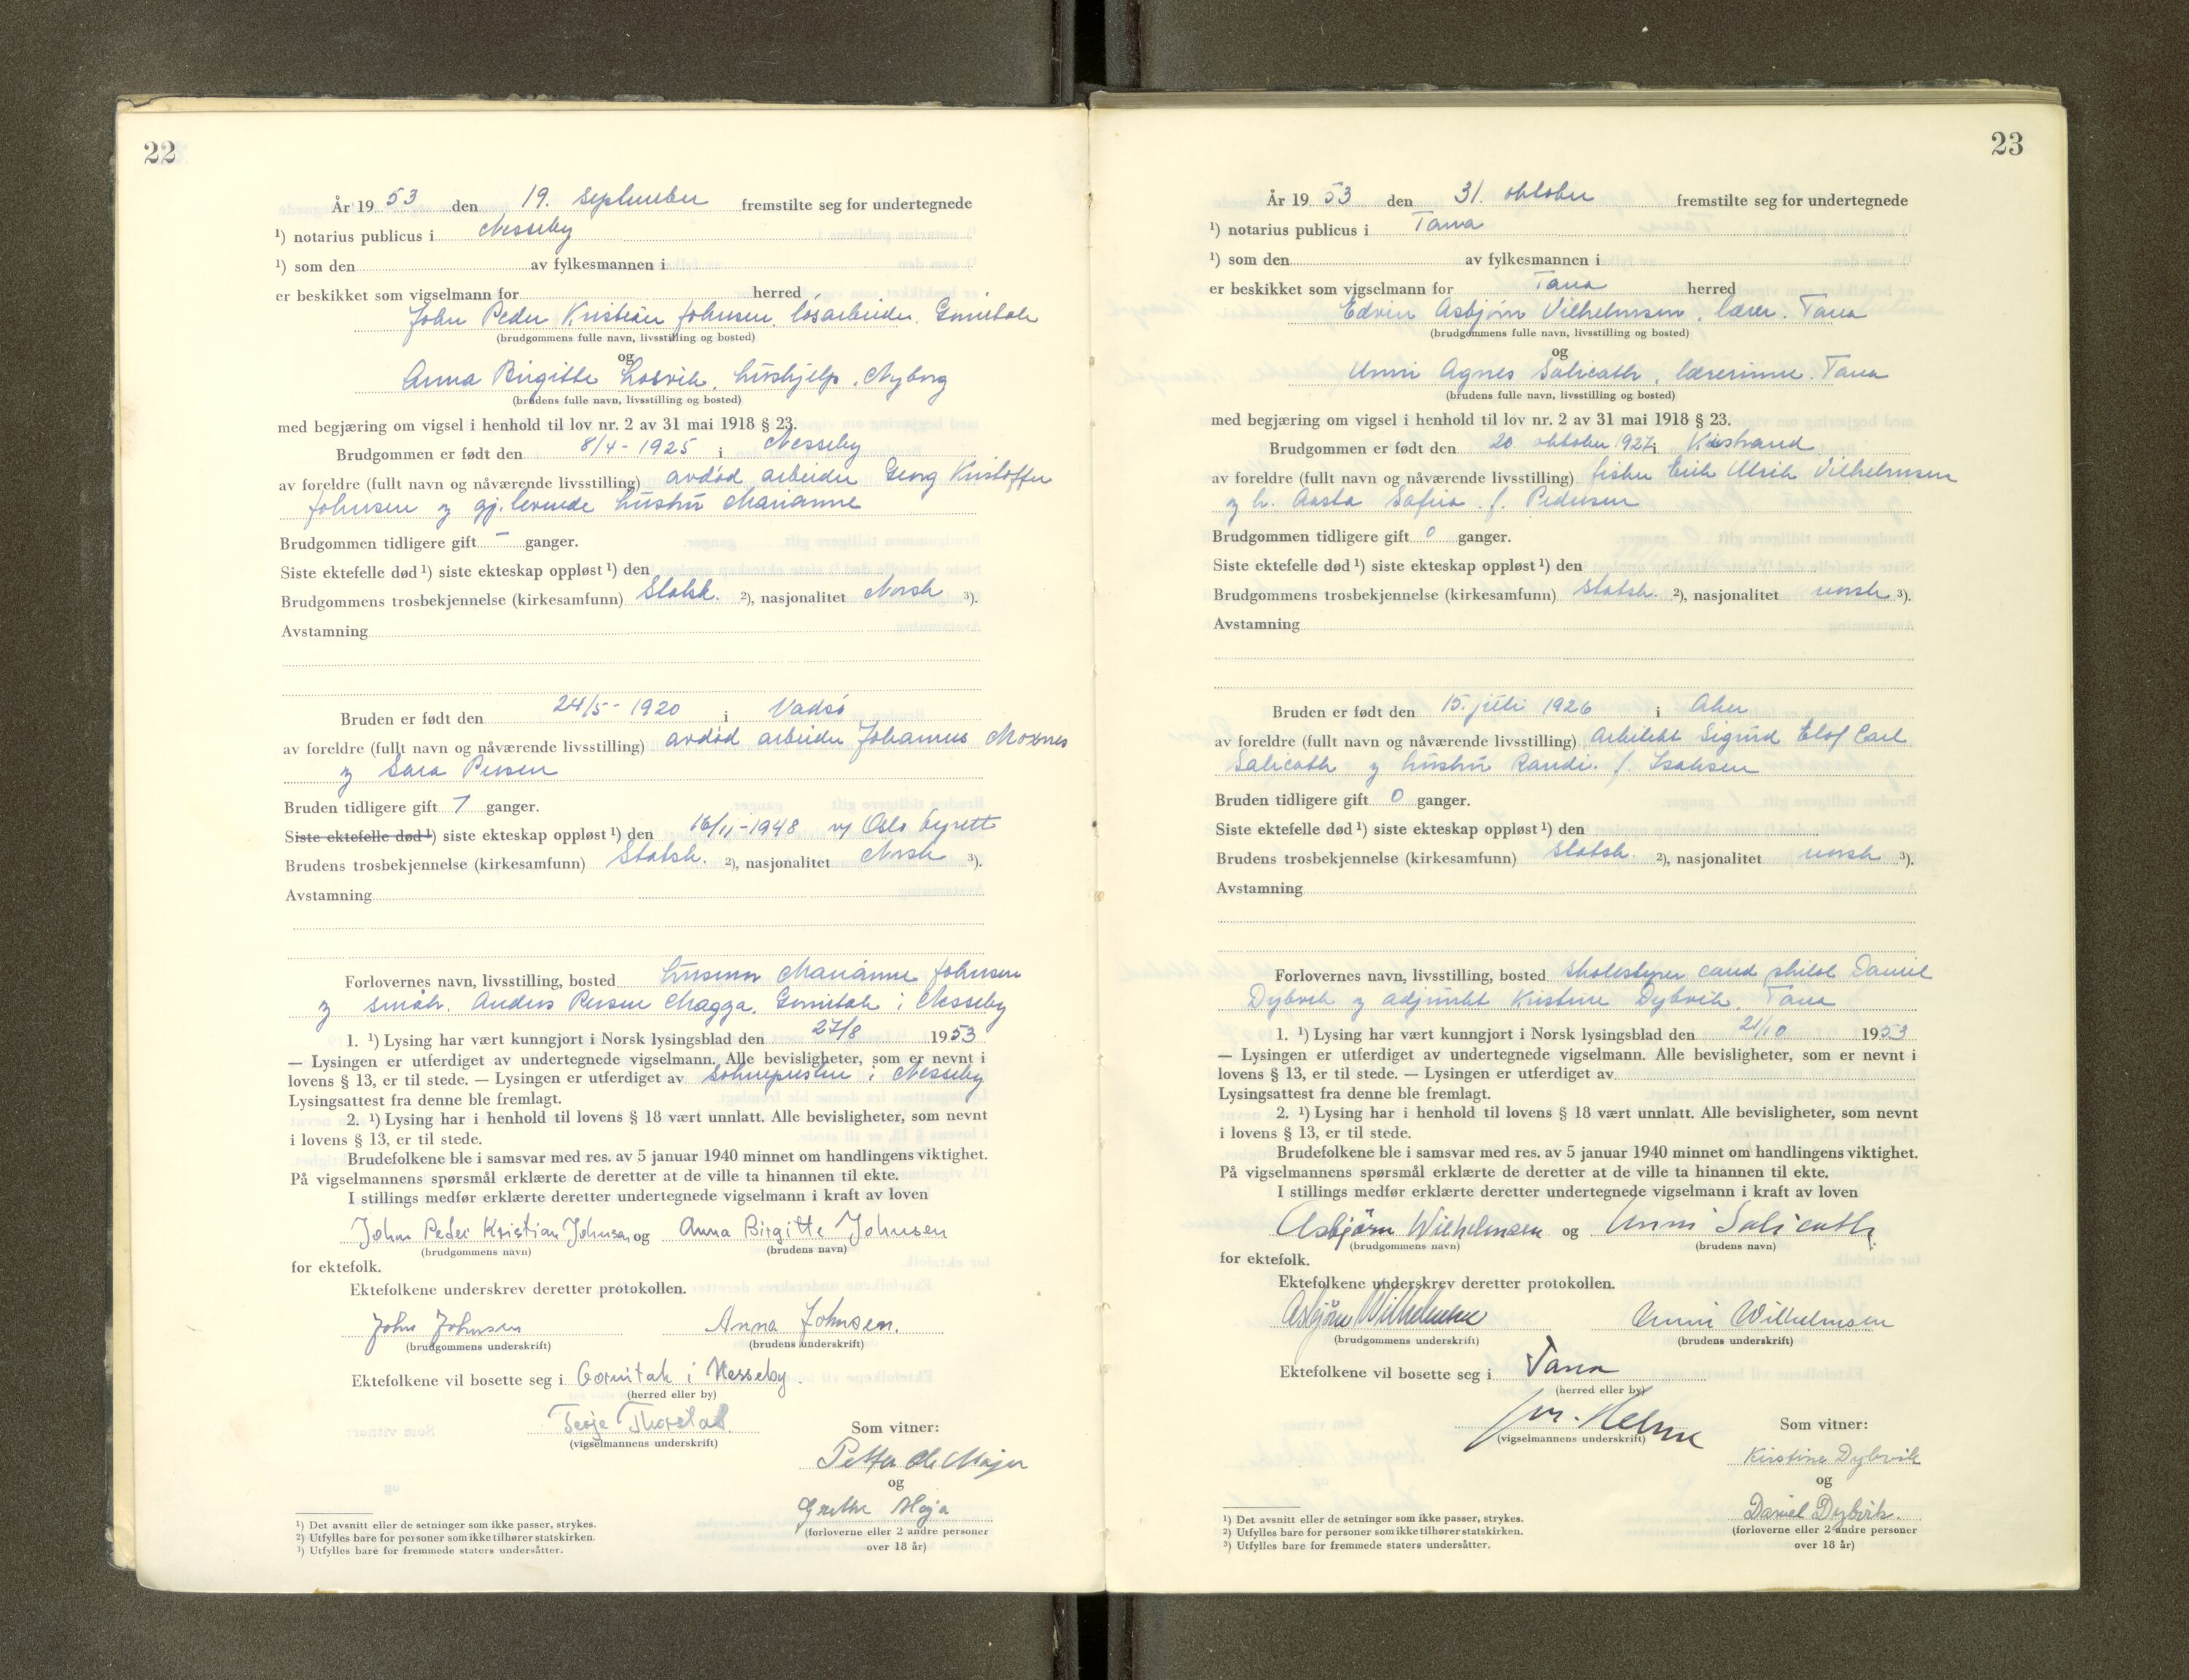 22
År 19 53 den 19. september fremstilte seg for undertegnede
¹) notarius publicus i Nesseby
¹) som den av fylkesmannen i
er beskikket som vigselmann for herred
John Peder Kristian Johnsen, løsarbeider. Gornitak
(brudgommens fulle navn, livsstilling og bosted)
og
Anna Birgitte Losvik, hushjelp, Nyborg
(brudens fulle navn, livsstilling og bosted)
med begjæring om vigsel i henhold til lov nr. 2 av 31 mai 1918 § 23.
Brudgommen er født den 8/4 - 1925 i Nesseby
av foreldre (fullt navn og nåværende livsstilling) avdød arbeider Georg Kristoffer
Johnsen og gj.levende hustru Marianne
Brudgommen tidligere gift - ganger.
Siste ektefelle død ¹) siste ekteskap oppløst ¹) den
Brudgommens trosbekjennelse (kirkesamfunn) Statsk. ²), nasjonalitet Norsk ³).
Avstamning
Bruden er født den 24/5 - 1920 i Vadsø
av foreldre (fullt navn og nåværende livsstilling) avdød arbeider Johannes Moxnes
og Sara Persen
Bruden tidligere gift 1 ganger.
Siste ektefelle død ¹) siste ekteskap oppløst ¹) den 16/11-1948 v/ Oslo byrett
Brudens trosbekjennelse (kirkesamfunn) Statsk. ²), nasjonalitet Norsk ³).
Avstamning
Forlovernes navn, livsstilling, bosted husmor Marianne Johnsen
og småbr. Anders Persen Magga, Gornitak i Nesseby
1. ¹) Lysing har vært kunngjort i Norsk lysingsblad den 27/8 1953
— Lysingen er utferdiget av undertegnede vigselmann. Alle bevisligheter, som er nevnt i
lovens § 13, er til stede. — Lysingen er utferdiget av Soknepresten i Nesseby
Lysingsattest fra denne ble fremlagt.
2. ¹) Lysing har i henhold til lovens § 18 vært unnlatt. Alle bevisligheter, som nevnt
i lovens § 13, er til stede.
Brudefolkene ble i samsvar med res. av 5 januar 1940 minnet om handlingens viktighet.
På vigselmannens spørsmål erklærte de deretter at de ville ta hinannen til ekte.
I stillings medfør erklærte deretter undertegnede vigselmann i kraft av loven
John Peder Kristian Johnsen og Anna Birgitte Johnsen
(brudgommens navn) (brudens navn)
for ektefolk.
Ektefolkene underskrev deretter protokollen.
John Johnsen Anna Johnsen.
(brudgommens underskrift) (brudens underskrift)
Ektefolkene vil bosette seg i Gornitak i Nesseby.
(herred eller by)
Terje
(vigselmannens underskrift)
Som vitner:
Petter
og
Grethe
(forloverne eller 2 andre personer
over 18 år)
¹) Det avsnitt eller de setninger som ikke passer, strykes.
²) Utfylles bare for personer som ikke tilhører statskirken.
³) Utfylles bare for fremmede staters undersåtter.
23
År 19 53 den 31. oktober fremstilte seg for undertegnede
¹) notarius publicus i Tana
¹) som den av fylkesmannen i
er beskikket som vigselmann for Tana herred
Edvin Asbjørn Vilhelmsen, lærer. Tana
(brudgommens fulle navn, livsstilling og bosted)
og
Unni Agnes Salicath, lærerinne. Tana
(brudens fulle navn, livsstilling og bosted)
med begjæring om vigsel i henhold til lov nr. 2 av 31 mai 1918 § 23.
Brudgommen er født den 20 oktober 1927 i Kistrand
av foreldre (fullt navn og nåværende livsstilling) fisker Erik Ulrik Vilhelmsen
og h. Aasta Sofie f. Pedersen
Brudgommen tidligere gift 0 ganger.
Siste ektefelle død ¹) siste ekteskap oppløst ¹) den
Brudgommens trosbekjennelse (kirkesamfunn) Statsk. ²), nasjonalitet norsk ³).
Avstamning
Bruden er født den 15. juli 1926 i Aker
av foreldre (fullt navn og nåværende livsstilling) Arkitekt Sigurd Elof Carl
Salicath og hustru Randi f. Isaksen
Bruden tidligere gift 0 ganger.
Siste ektefelle død ¹) siste ekteskap oppløst ¹) den
Brudens trosbekjennelse (kirkesamfunn) Statsk. ²), nasjonalitet norsk ³).
Avstamning
Forlovernes navn, livsstilling, bosted skolestyrer cand philol Daniel
Dybvik og adjunkt Kristine Dybvik, Tana
1. ¹) Lysing har vært kunngjort i Norsk lysingsblad den 21/10 1953
— Lysingen er utferdiget av undertegnede vigselmann. Alle bevisligheter, som er nevnt i
lovens § 13, er til stede. — Lysingen er utferdiget av
Lysingsattest fra denne ble fremlagt.
2. ¹) Lysing har i henhold til lovens § 18 vært unnlatt. Alle bevisligheter, som nevnt
i lovens § 13, er til stede.
Brudefolkene ble i samsvar med res. av 5 januar 1940 minnet om handlingens viktighet.
På vigselmannens spørsmål erklærte de deretter at de ville ta hinannen til ekte.
I stillings medfør erklærte deretter undertegnede vigselmann i kraft av loven
Asbjörn Wilhelmsen og Unni Salicath
(brudgommens navn) (brudens navn)
for ektefolk.
Ektefolkene underskrev deretter protokollen.
Asbjörn Wilhelmsen Unni Wilhelmsen
(brudgommens underskrift) (brudens underskrift)
Ektefolkene vil bosette seg i Tana
(herred eller by)
(vigselmannens underskrift)
Som vitner:
Kirstine Dybvik
og
Daniel Dybvik.
(forloverne eller 2 andre personer
over 18 år)
¹) Det avsnitt eller de setninger som ikke passer, strykes.
²) Utfylles bare for personer som ikke tilhører statskirken.
³) Utfylles bare for fremmede staters undersåtter.